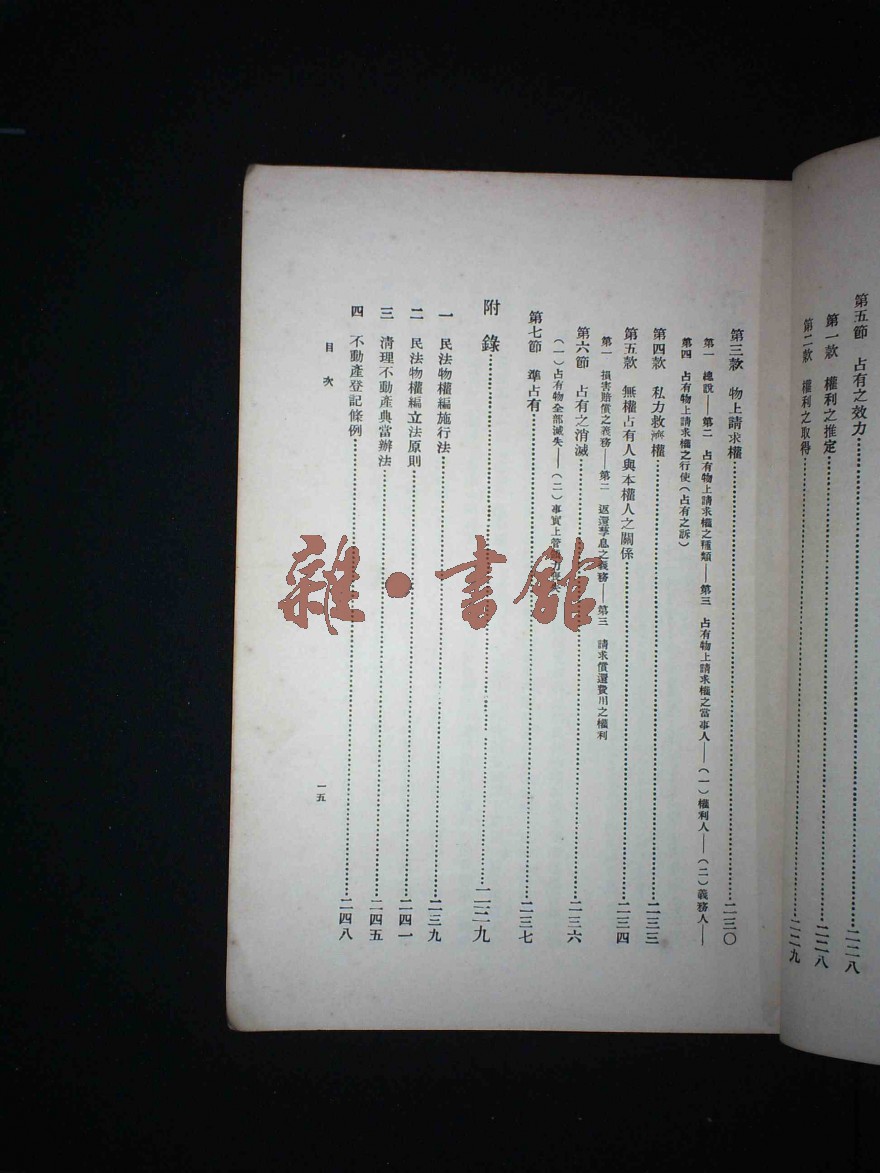 第五節　占有之效力……二二八
第一款　權利之推定……二二八
第二款　權利之取得……二二九
第三款　物上請求權……二三〇
第一　總說——第二　占有物上請求權之種類——第三　占有物上請求權之當事人——(一)權利人——(二)義務人——
第四　占有物上請求權之行使(占有之訴)
第四款　私力救濟權……二三三
第五款　無權占有人與本權人之關係……二三四
第一　損害賠償之義務——第二　返還孳息之義務——第三　請求償還費用之權利
第六節　占有之消滅……二三六
(一)占有物全部滅失——(二)事實上管
第七節　準占有……二三七
附錄……二二九
一　民法物權編施行法……二三九
二　民法物權編立法原則……二四一
三　清理不動產典當辦法……二四五
四　不動產登記條例……二四八
目次
一五
雜·書館